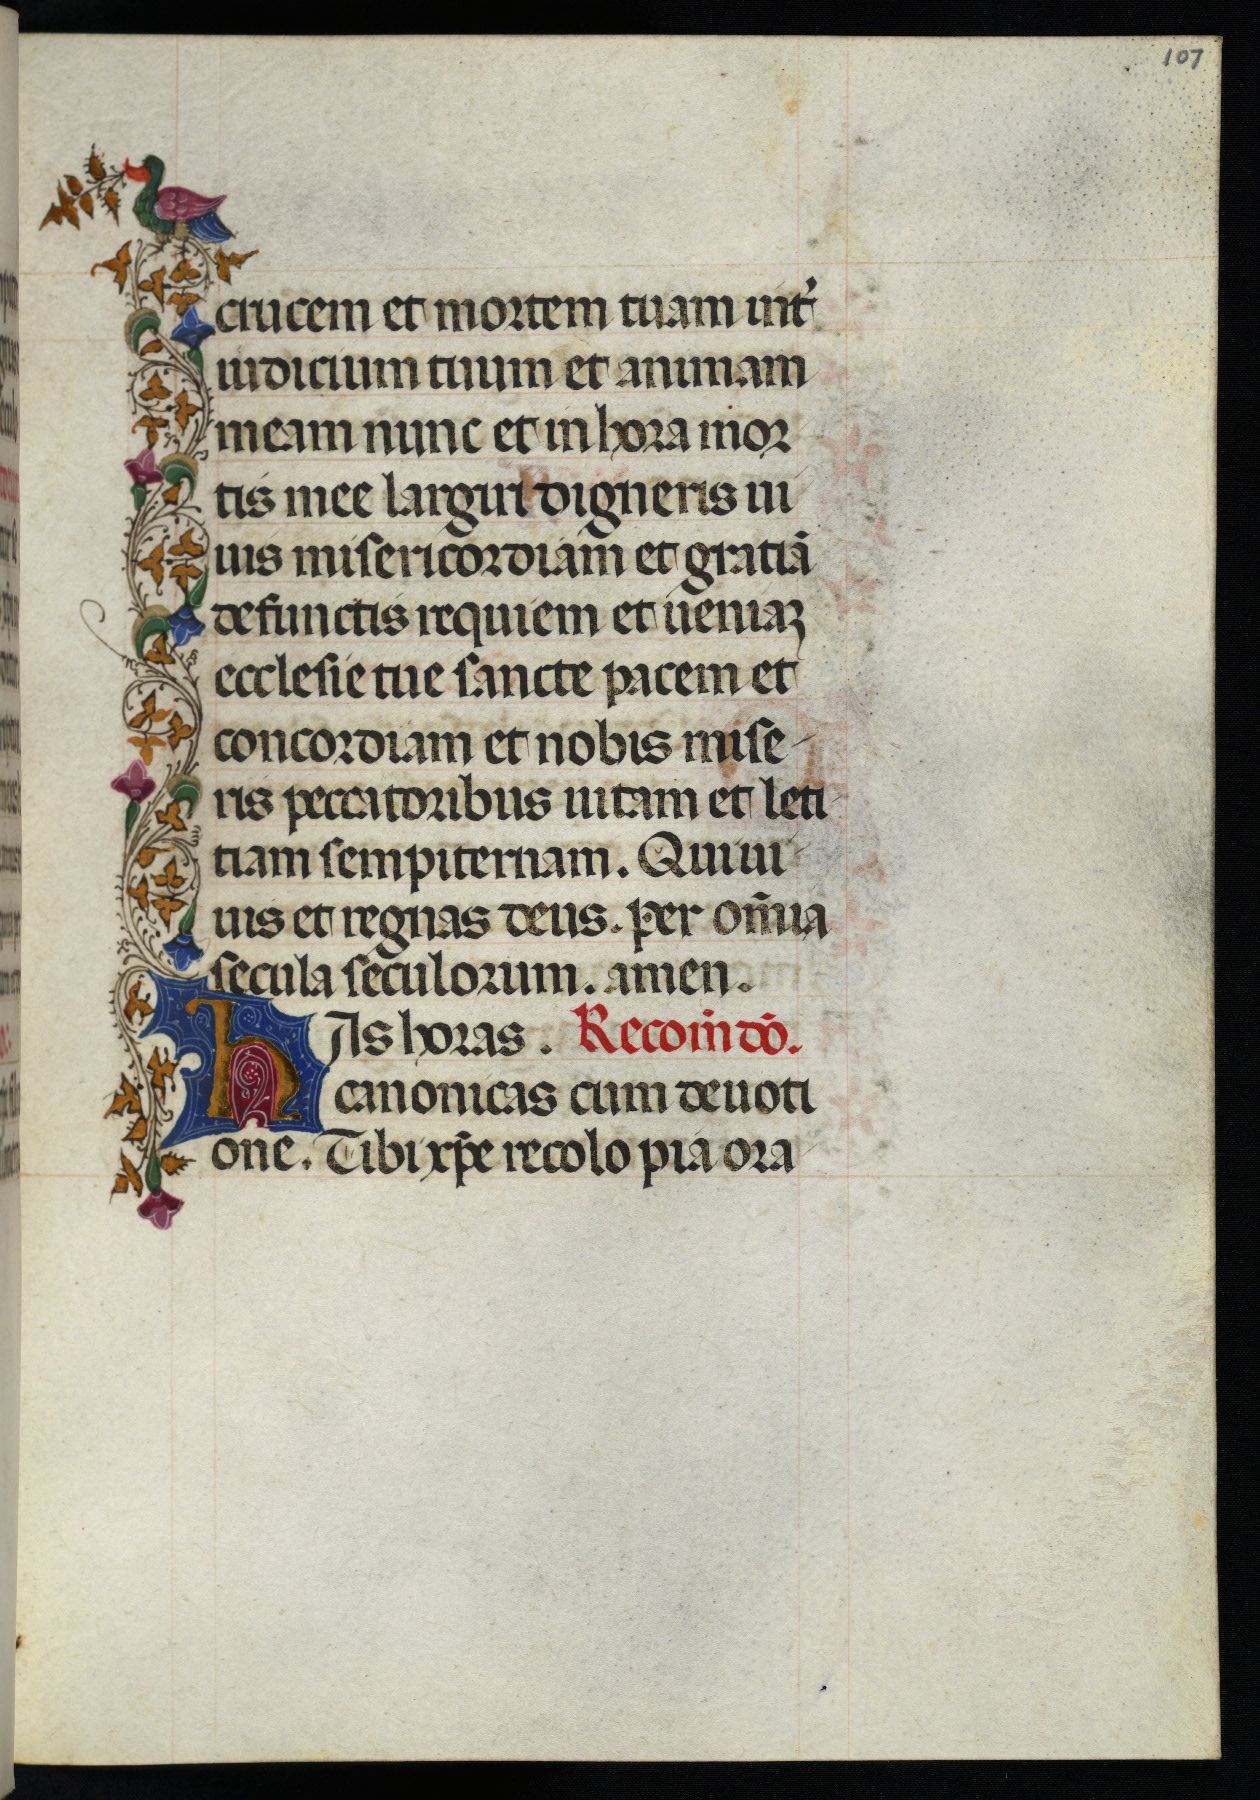 107
crucem et mortem tuam int̉
iudicium tuum et animam
meam nunc et in hora mor
tis mee largiri digneris ui
uis misericordiam et gratiā
defunctis requiem et ueniaꝫ
ecclesie tue sancte pacem et
concordiam et nobis mise-
ris peccatoribus uitam et leti
tiam sempiternam. Qui ui
uis et regnas deus. per om̄ia
secula seculorum. amen.
HAs horas. Recom̄dō.
canonicas cum deuoti
one. Tibi xp̄e recolo pia ora